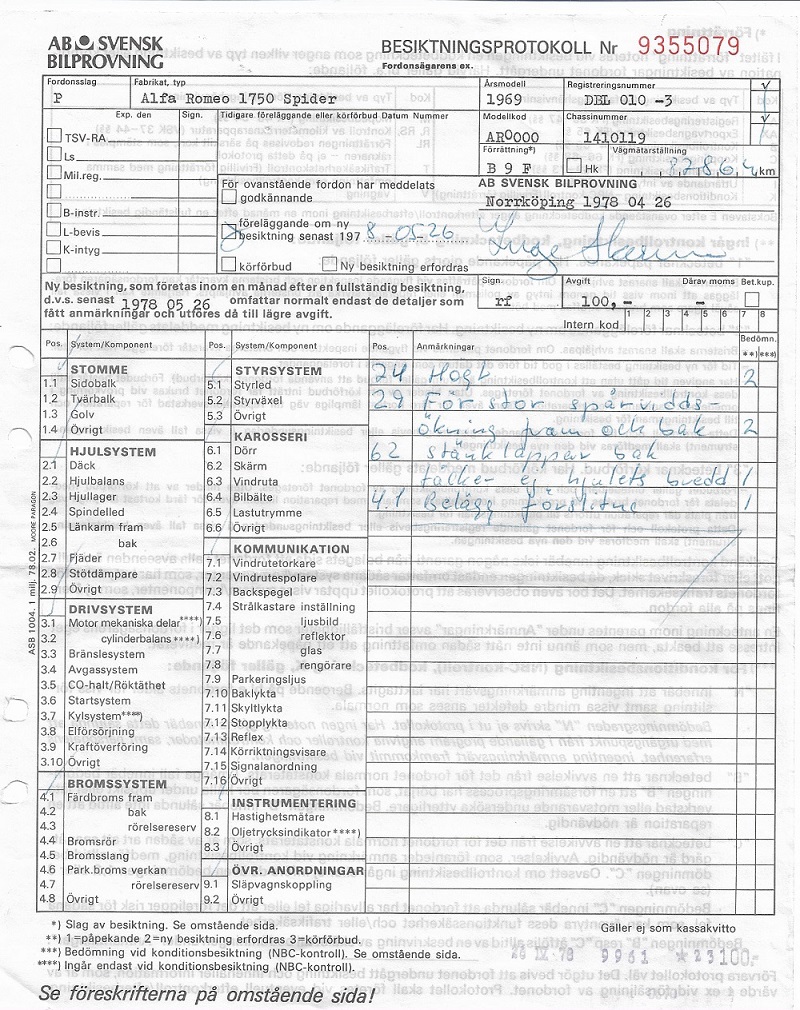 AB SVENSK
BILPROVNING
BESIKTNINGSPROTOKOLL Nr 9355079
Fordonsägarens ex.
Fordonsslag
P
Fabrikat, typ
Alfa Romeo 1750 Spider
Årsmodell
1969
Registreringsnummer
DEL 010 -3
Modellkod
AR0000
Chassinummer
1410119
Förrättning*)
B 9 F
Hk
Vägmätarställning
km
Exp. den
Sign.
TSV-RA
Ls
Mil.reg.
B-instr.
L-bevis
K-intyg
Tidigare föreläggande eller körförbud Datum Nummer
För ovanstående fordon har meddelats
godkännande
föreläggande om ny
besiktning senast 197 8-05-26
körförbud
Ny besiktning erfordras
AB SVENSK BILPROVNING
Norrköping 1978 04 26
Ny besiktning, som företas inom en månad efter en fullständig besiktning,
d.v.s. senast 1978 05 26 omfattar normalt endast de detaljer som
fått anmärkningar och utföres då till lägre avgift.
Sign.
rf
Avgift
100,-
Därav moms
Bet.kup.
Intern kod
1 2 3 4 5 6 7 8
Pos. System/Komponent
STOMME
1.1 Sidobalk
1.2 Tvärbalk
1.3 Golv
1.4 Övrigt
HJULSYSTEM
2.1 Däck
2.2 Hjulbalans
2.3 Hjullager
2.4 Spindelled
2.5 Länkarm fram
2.6 bak
2.7 Fjäder
2.8 Stötdämpare
2.9 Övrigt
DRIVSYSTEM
3.1 Motor mekaniska delar****)
3.2 cylinderbalans****)
3.3 Bränslesystem
3.4 Avgassystem
3.5 CO-halt/Röktäthet
3.6 Startsystem
3.7 Kylsystem****)
3.8 Elförsörjning
3.9 Kraftöverföring
3.10 Övrigt
BROMSSYSTEM
4.1 Färdbroms fram
4.2 bak
4.3 rörelsereserv
4.4 Bromsrör
4.5 Bromsslang
4.6 Park.broms verkan
4.7 rörelsereserv
4.8 Övrigt
Pos. System/Komponent
STYRSYSTEM
5.1 Styrled
5.2 Styrväxel
5.3 Övrigt
KAROSSERI
6.1 Dörr
6.2 Skärm
6.3 Vindruta
6.4 Bilbälte
6.5 Lastutrymme
6.6 Övrigt
KOMMUNIKATION
7.1 Vindrutetorkare
7.2 Vindrutespolare
7.3 Backspegel
7.4 Strålkastare inställning
7.5 ljusbild
7.6 reflektor
7.7 glas
7.8 rengörare
7.9 Parkeringsljus
7.10 Baklykta
7.11 Skyltlykta
7.12 Stopplykta
7.13 Reflex
7.14 Körriktningsvisare
7.15 Signalanordning
7.16 Övrigt
INSTRUMENTERING
8.1 Hastighetsmätare
8.2 Oljetrycksindikator****)
8.3 Övrigt
ÖVR. ANORDNINGAR
9.1 Släpvagnskoppling
9.2 Övrigt
Pos. Anmärkningar
Bedömn.
**) ***)
24 Högt 2
29 För stor spårvidds-
ökning fram och bak 2
62 stänklappar bak
täcker ej hjulets bredd 1
4.1 Belägg förslitna 1
ASB 1004. 1 milj. 78.02. MOORE PARAGON
*) Slag av besiktning. Se omstående sida.
**) 1=påpekande 2=ny besiktning erfordras 3=körförbud.
***) Bedömning vid konditionsbesiktning (NBC-kontroll). Se omstående sida.
****) Ingår endast vid konditionsbesiktning (NBC-kontroll).
Gäller ej som kassakvitto
26 IV 78 9961 *23100.-
Se föreskrifterna på omstående sida!